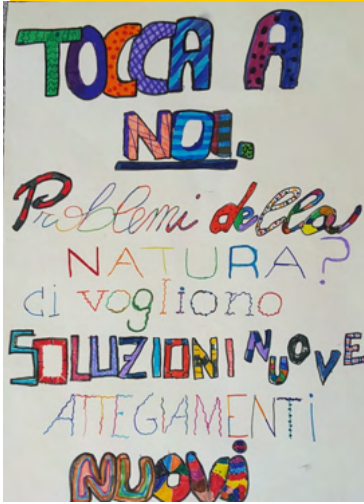 TOCCA A
NOI.
Problemi della
NATURA?
ci vogliono
SOLUZIONI NUOVE
ATTEGIAMENTI
NUOVi